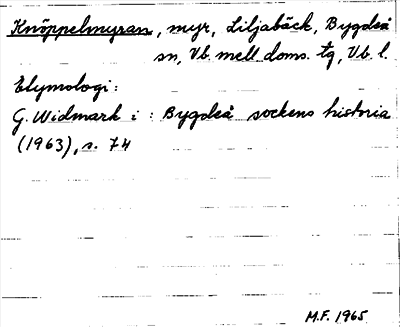 Knöppelmyran, myr, Liljabäck, Bygdeå
sn, Vb. mell. doms. tg, Vb. l.
Etymologi:
G. Widmark i: Bygdeå sockens historia
(1963), s. 74
M.F. 1965